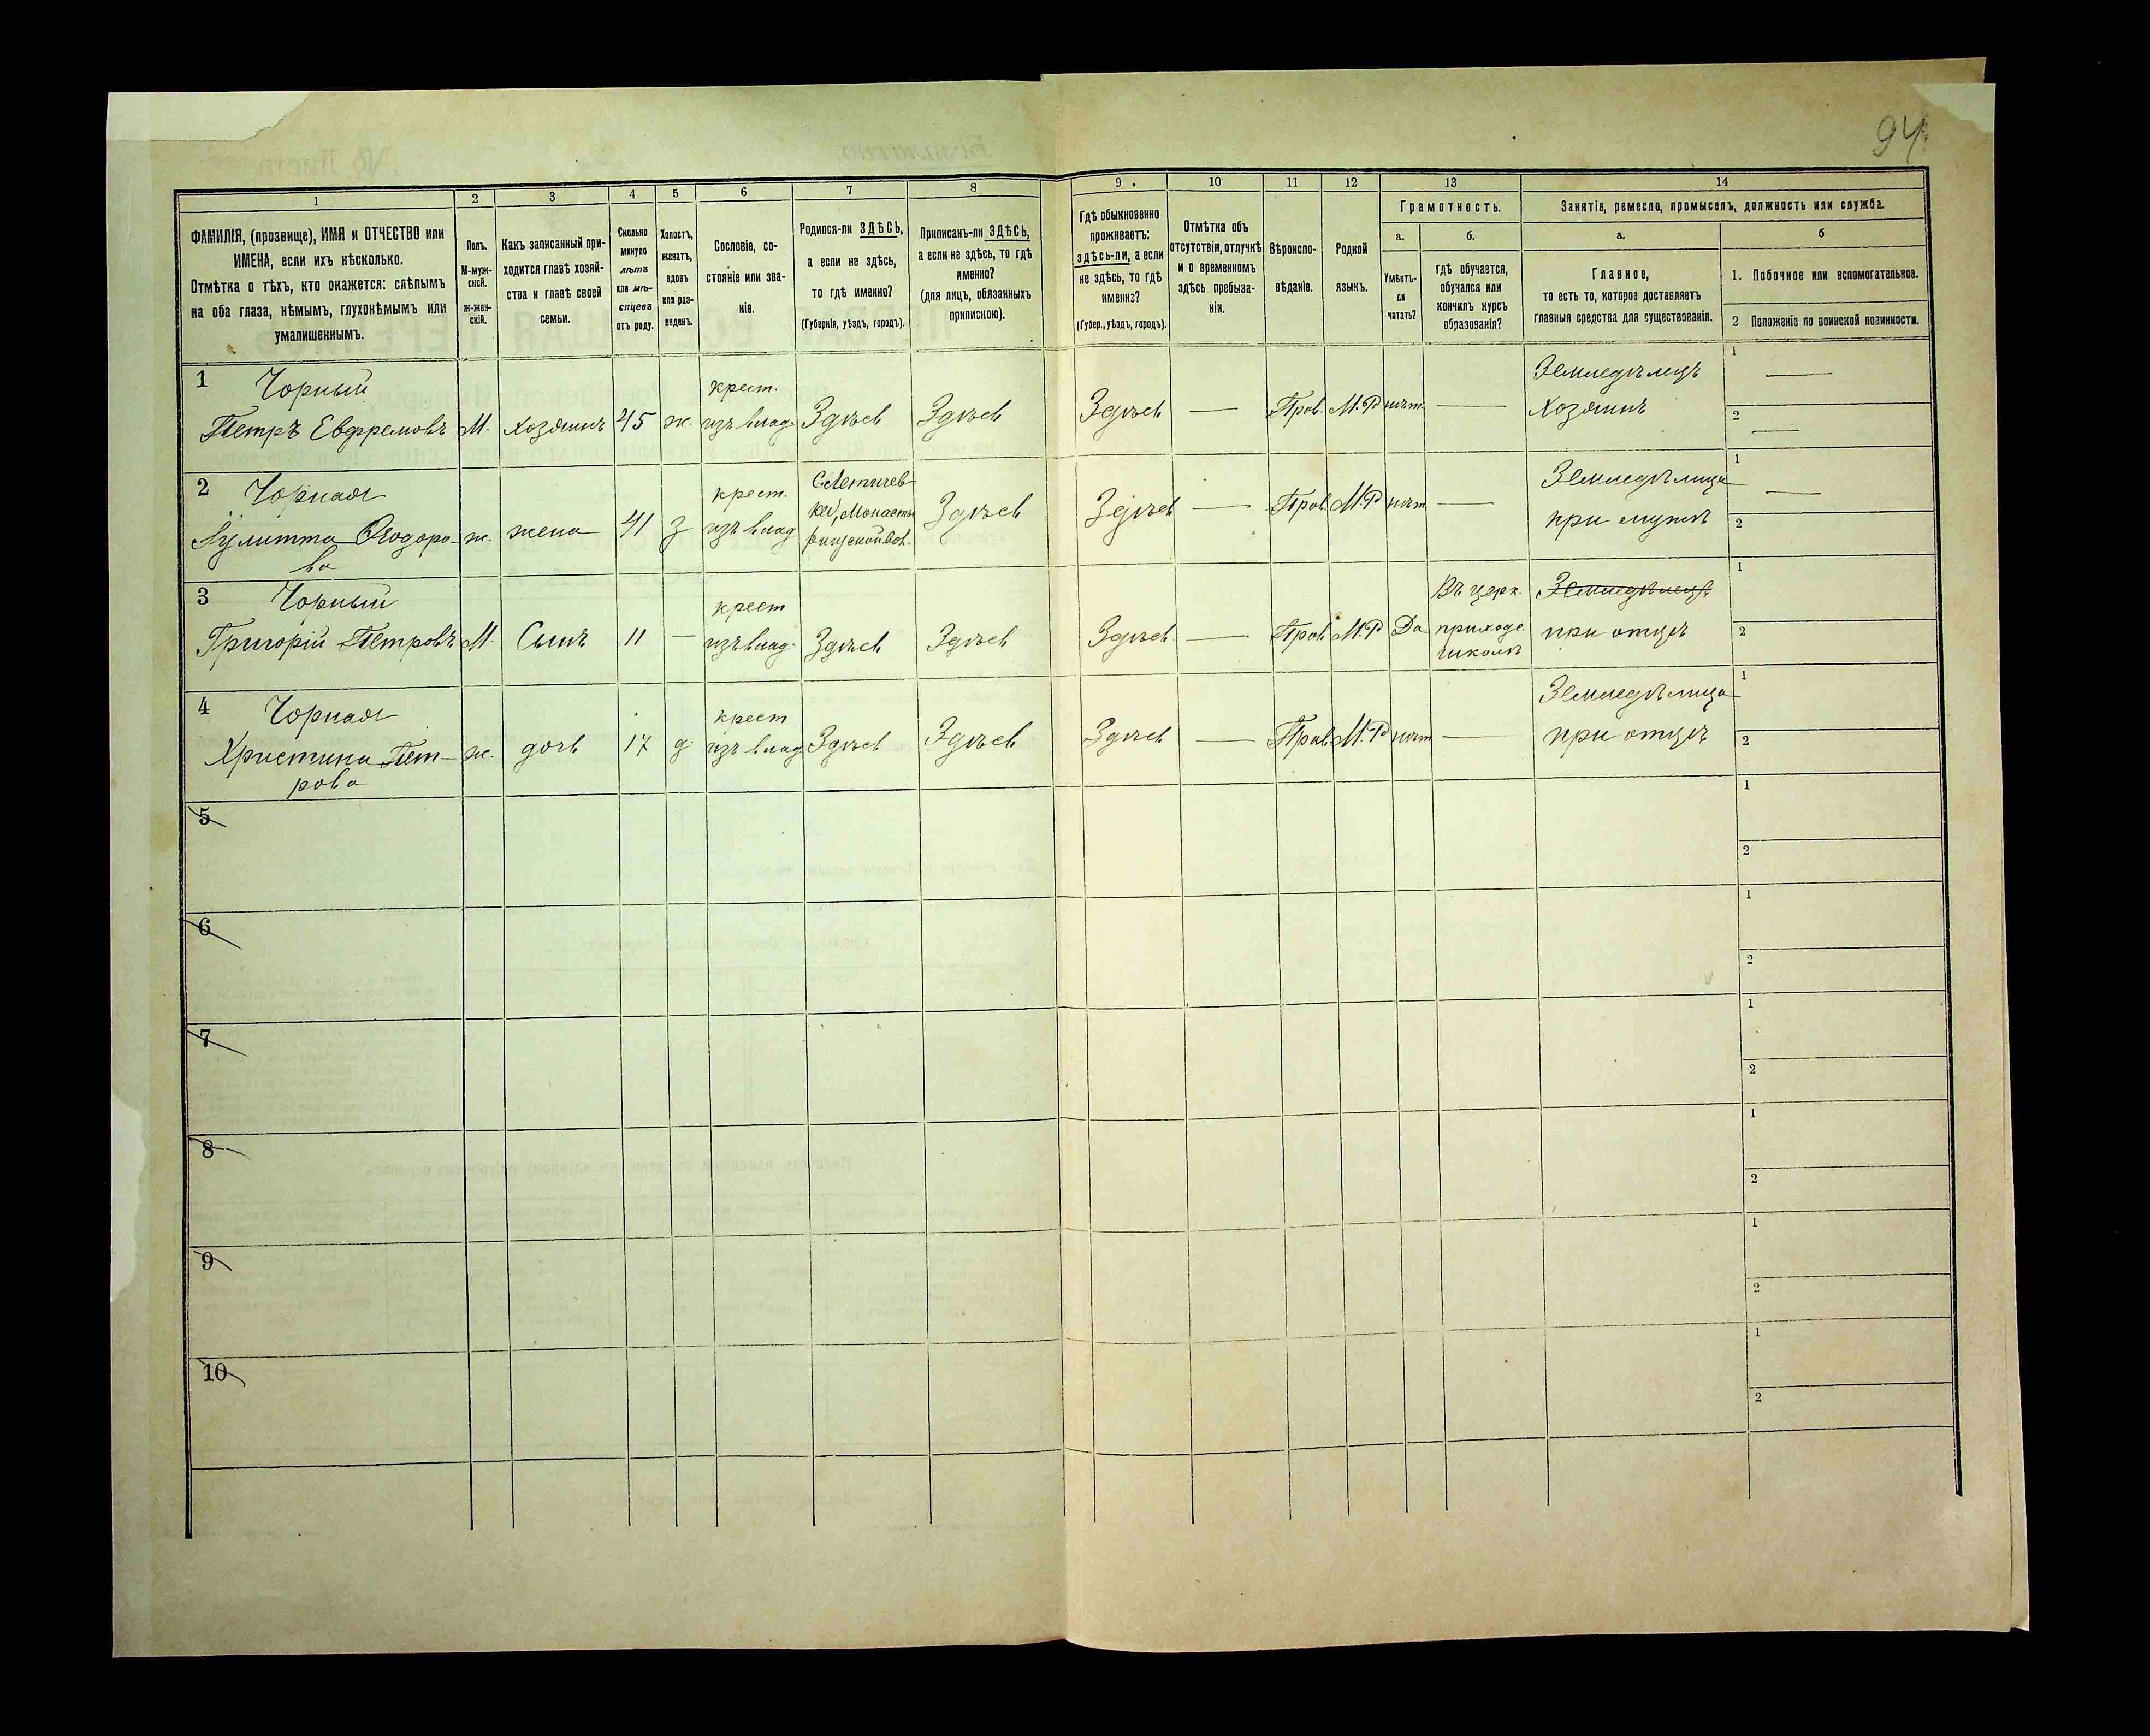 94
1
2
3
4
5
6
7
8
9
10
11
12
13
14
ФАМИЛІЯ, (прозвище), ИМЯ и ОТЧЕСТВО или
ИМЕНА, если ихъ нѣсколько.
Отмѣтка о тѣхъ, кто окажется: слѣпымъ
на оба глаза, нѣмымъ, глухонѣмымъ или
умалишеннымъ.
Полъ.
М-муж-
ской.
Ж-жен-
скій.
Какъ записанный при-
ходится главѣ хозяй-
ства и главѣ своей
семьи.
Сколько
минуло
лѣтъ
или мѣ-
сяцевъ
отъ роду.
Холостъ,
женатъ,
вдовъ
или раз-
веденъ.
Сословіе, со-
стояніе или зва-
ніе.
Родился-ли ЗДѢСЬ,
а если не здѣсь,
то гдѣ именно?
(Губернія, уѣздъ, городъ).
Приписанъ-ли ЗДѢСЬ,
а если не здѣсь, то гдѣ
именно?
(для лицъ, обязанныхъ
припискою).
Гдѣ обыкновенно
проживаетъ:
здѣсь-ли, а если
не здѣсь, то гдѣ
именно?
(Губер., уѣздъ, городъ).
Отмѣтка объ
отсутствіи, отлучкѣ
и о временномъ
здѣсь пребыва-
ніи.
Вѣроиспо-
вѣданіе.
Родной
языкъ.
Грамотность.
а.
Умѣетъ-
ли
читать?
б.
гдѣ обучается,
обучался или
кончилъ курсъ
образованія?
Занятіе, ремесло, промыселъ, должность или служба.
а.
Главное,
то есть то, которое доставляетъ
главныя средства для существованія.
б
1. Побочное или вспомогательное.
2 Положеніе по воинской повинности.
1 Чорный
Петръ Евфремовъ М. Хозяинъ 45 ж. крест.
изъ влад. Здѣсь Здѣсь Здѣсь — Прав. М.Р нѣт — Земледѣлецъ
Хозяинъ 1 —
2 —
2 Чорная
Іулитта Ѳеодоро-
ва ж. жена 41 з крест.
изъ влад С. Летичев
Монасты Здѣсь Здѣсь — Прав М.Р нѣт — Земледѣлица
при мужѣ 1 —
2
3 Чорный
Григорій Петровъ М. Сынъ 11 — крест
изъ влад. Здѣсь Здѣсь Здѣсь — Прав М.Р Да Въ церк.
приход.
школѣ Земледѣлецъ
при отцѣ 1
2
4 Чорная
Христина Пет-
рова ж. дочь 17 д крест
изъ влад Здѣсь Здѣсь Здѣсь — Прав. М.Р нѣт — Земледѣлица
при отцѣ 1
2
5 1
2
6 1
2
7 1
2
8 1
2
9 1
2
10 1
2